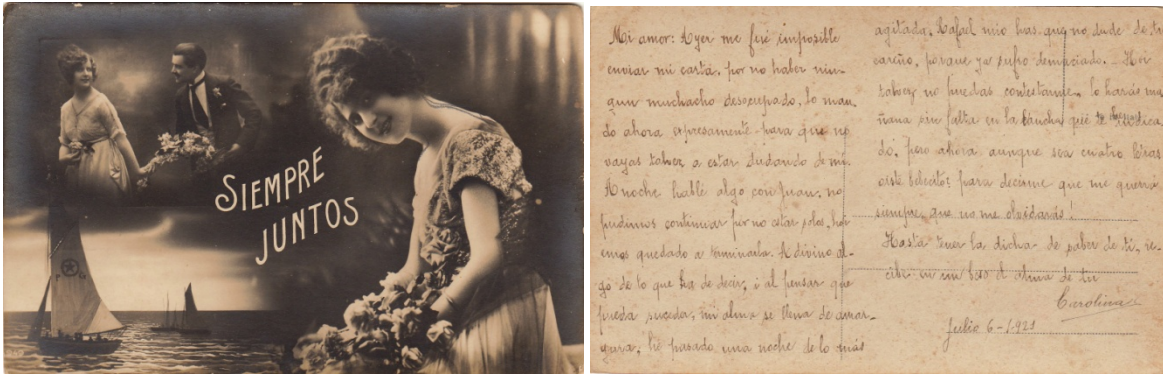 SIEMPRE
JUNTOS
Mi amor: Ayer me fué imposible
enviar mi carta, por no haber nin-
gun muchacho desocupado, lo man-
do ahora expresamente para que no
vayas talvez a estar dudando de mi.
Anoche hablé algo con Juan, no
pudimos continuar por no estar solos, hoi
emos quedado a terminarla. Adivino al-
go de lo que ha de decir, i al pensar que
pueda suceda, mi alma se llena de amar-
gura, hé pasado una noche de lo más
agitada. Rafael mio has que no dude de tu
cariño, porque ya sufro demaciado. Hoi
talvez no puedas contestarme, lo harás ma
ñana sin falta en la lancha que indica
do. Pero ahora aunque sea cuatro letras
oiste bebecito? para decirme que me queres
siempre, que no me olvidarás!
Hasta tener la dicha de saber de ti, re-
cibe en un beso el alma de tu
Carolina
Julio 6-1921